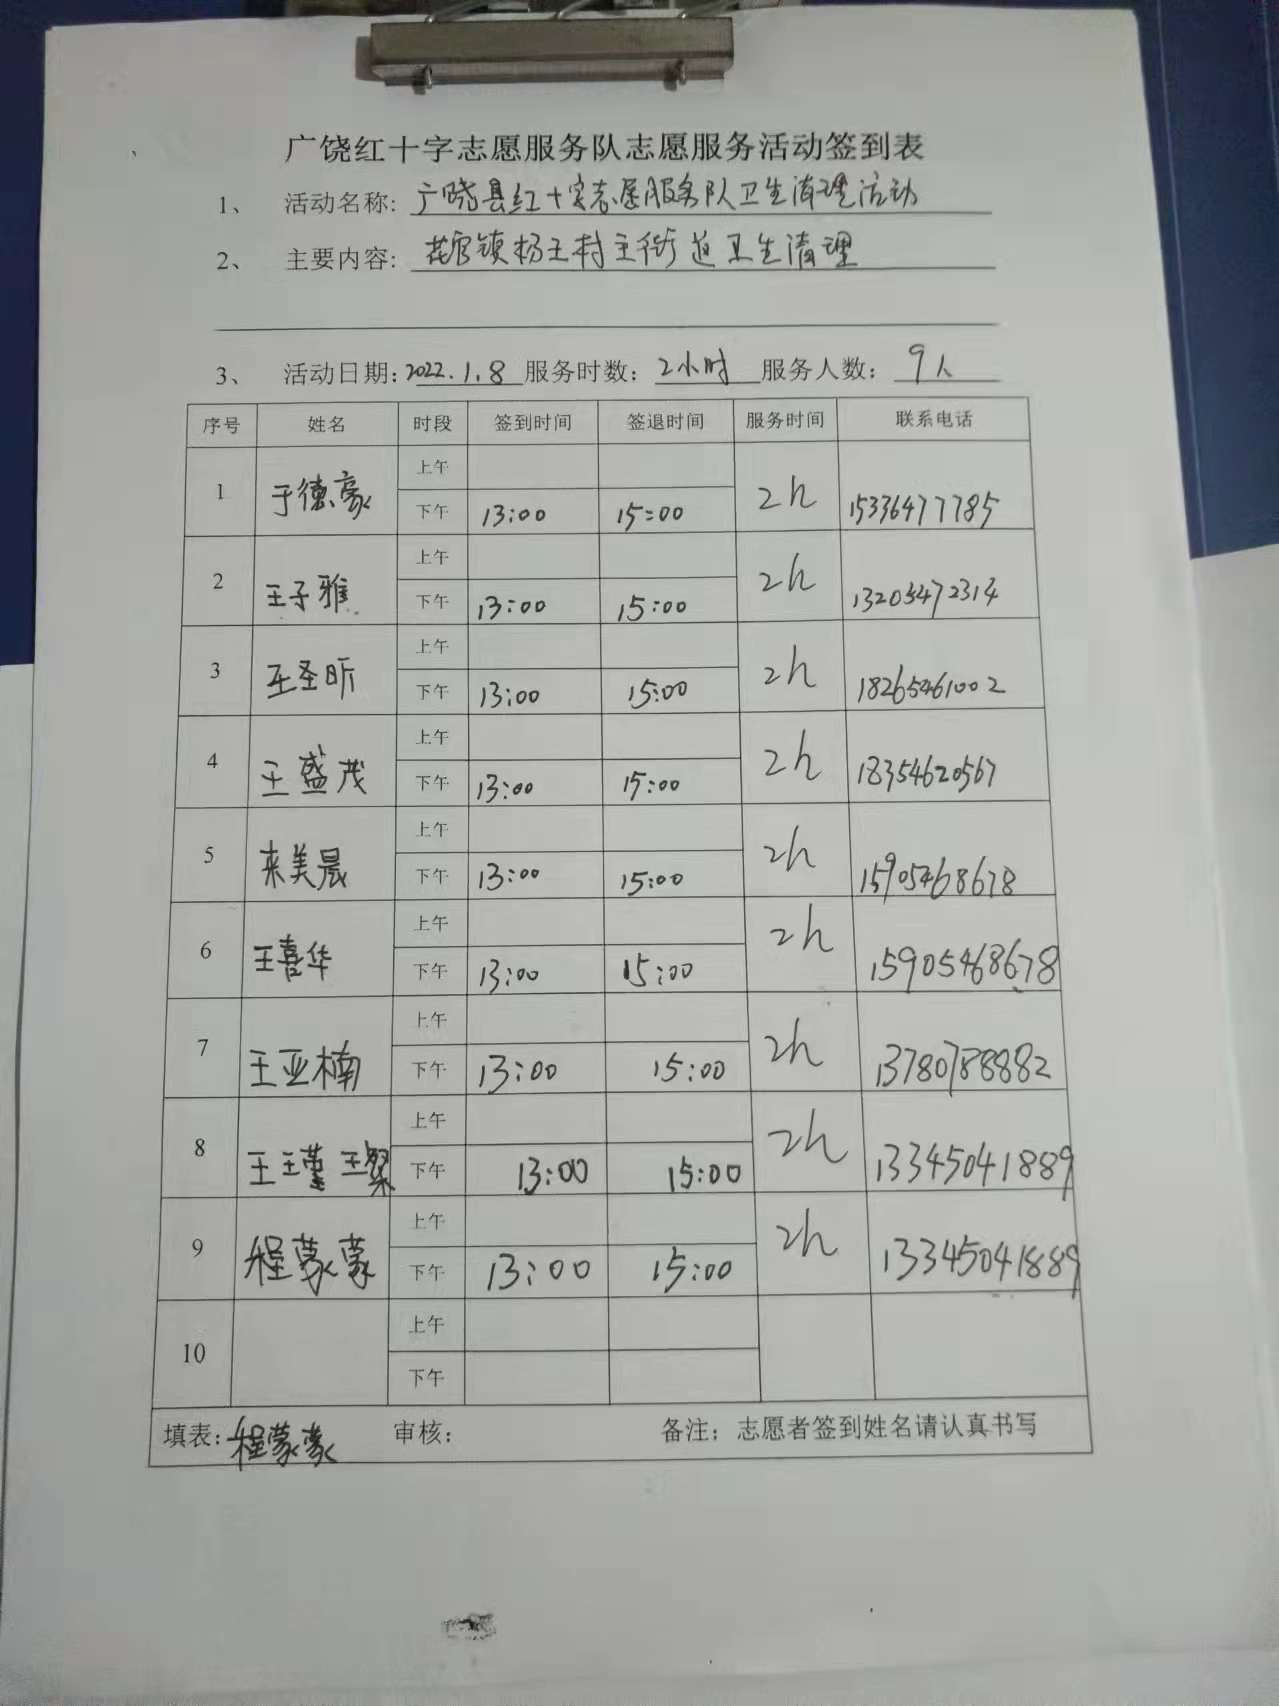 广饶红十字志愿服务队志愿服务活动签到表
1、 活动名称: 广饶县红十字志愿服务队卫生清理活动
2、 主要内容: 花官镇杨王村主街道卫生清理
3、 活动日期: 2022.1.8 服务时数: 2小时 服务人数: 9人
序号 姓名 时段 签到时间 签退时间 服务时间 联系电话
1 于德豪 上午 2h 15336477785
下午 13:00 15:00
2 王子雅 上午 2h 13205472314
下午 13:00 15:00
3 王圣昕 上午 2h 18265461002
下午 13:00 15:00
4 王盛茂 上午 2h 18354620567
下午 13:00 15:00
5 来美晨 上午 2h 15905468678
下午 13:00 15:00
6 王喜华 上午 2h 15905468678
下午 13:00 15:00
7 王亚楠 上午 2h 13780788882
下午 13:00 15:00
8 王瑾璨 上午 2h 13345041889
下午 13:00 15:00
9 程蒙蒙 上午 2h 13345041889
下午 13:00 15:00
10 上午
下午
填表: 程蒙蒙 审核: 备注: 志愿者签到姓名请认真书写